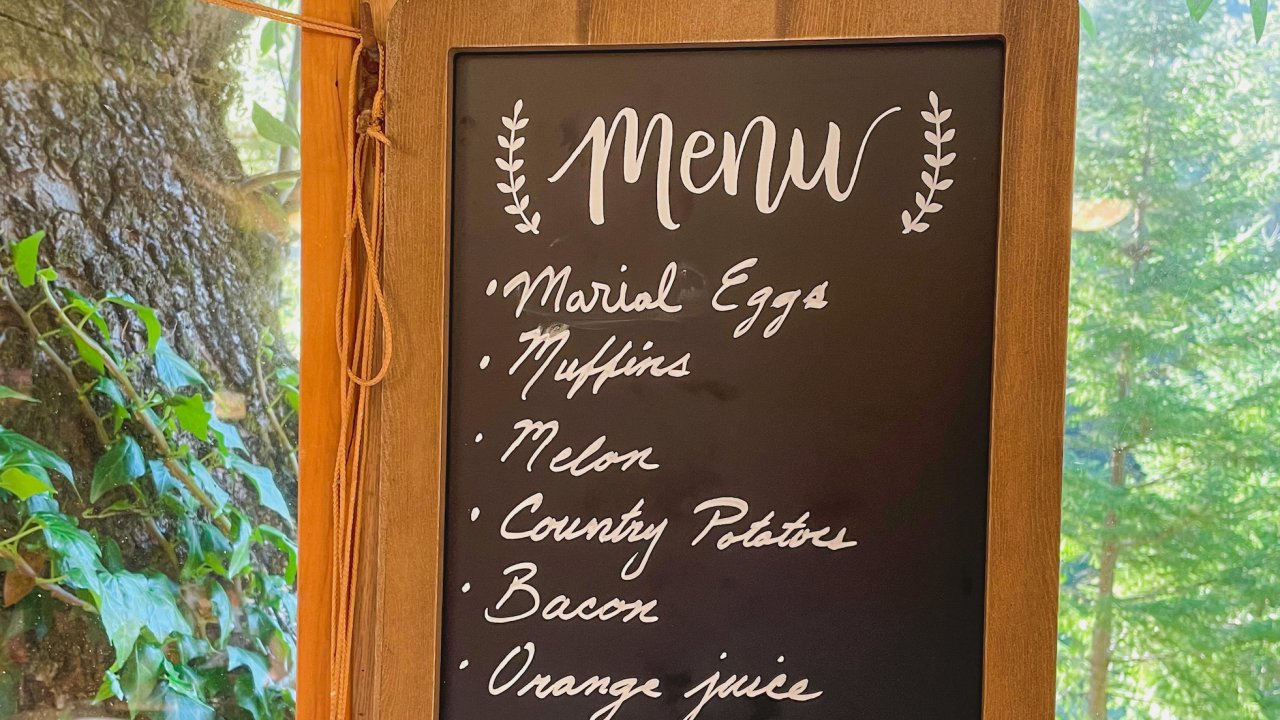 Menu
• Marial Eggs
• Muffins
• Melon
• Country Potatoes
• Bacon
• Orange juice